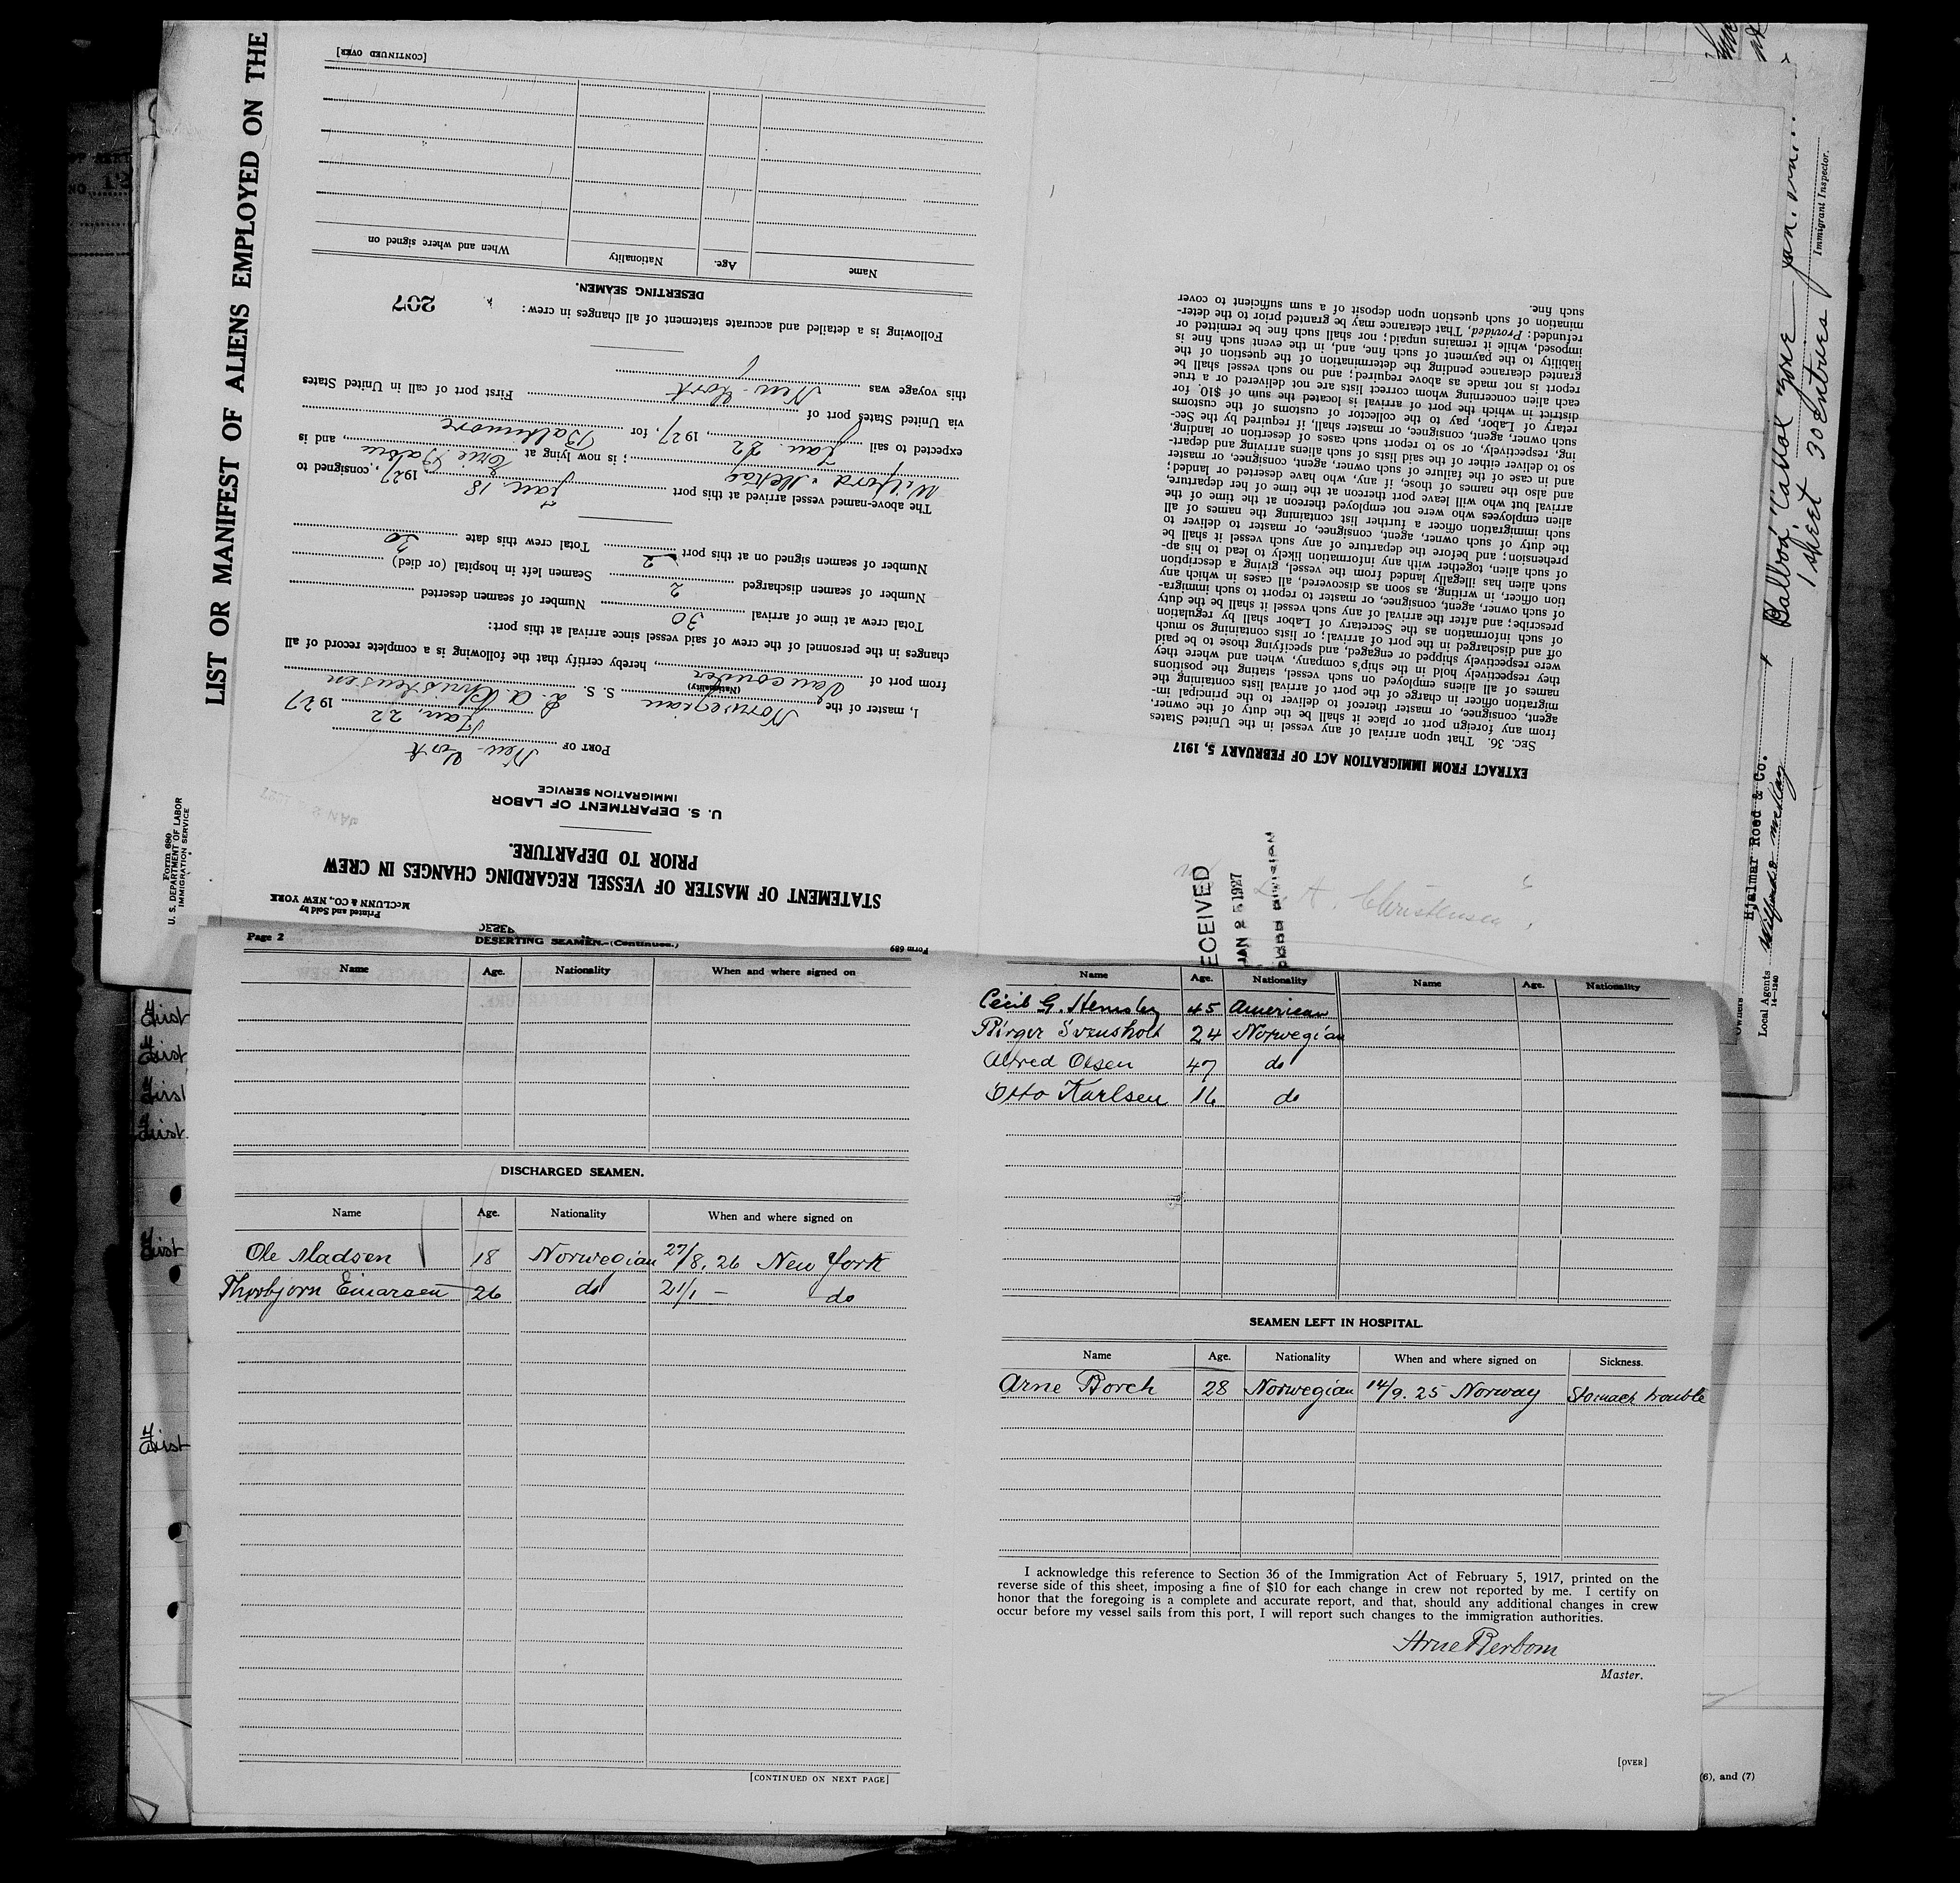 LIST OR MANIFEST OF ALIENS EMPLOYED ON THE
Form 680
U. S. DEPARTMENT OF LABOR
IMMIGRATION SERVICE
Printed and Sold by
McCLUNN & CO., NEW YORK
STATEMENT OF MASTER OF VESSEL REGARDING CHANGES IN CREW
PRIOR TO DEPARTURE.
U. S. DEPARTMENT OF LABOR
IMMIGRATION SERVICE
PORT OF New-York
Jan. 22 1927
I, master of the Norwegian S. S. L. A. Christensen
(Nationality)
from port of Vancouver, hereby certify that the following is a complete record of all
changes in the personnel of the crew of said vessel since arrival at this port:
Total crew at time of arrival 30 Number of seamen deserted
Number of seamen discharged 2 Seamen left in hospital (or died)
Number of seamen signed on at this port 2 Total crew this date 30
The above-named vessel arrived at this port Jan. 18 1927, consigned to
Wilford & McKay; is now lying at Erie Basin, and is
expected to sail Jan. 22, 1927, for Baltimore
via United States port of
this voyage was New-York First port of call in United States
Following is a detailed and accurate statement of all changes in crew:
207
DESERTING SEAMEN.
Name Age. Nationality When and where signed on
[CONTINUED OVER]
EXTRACT FROM IMMIGRATION ACT OF FEBRUARY 5, 1917
SEC. 36. That upon arrival of any vessel in the United States
from any foreign port or place it shall be the duty of the owner,
agent, consignee, or master thereof to deliver to the principal im-
migration officer in charge of the port of arrival lists containing the
names of all aliens employed on such vessel, stating the positions
they respectively hold in the ship's company, when and where they
were respectively shipped or engaged, and specifying those to be paid
off and discharged in the port of arrival; or lists containing so much
of such information as the Secretary of Labor shall by regulation
prescribe; and after the arrival of any such vessel it shall be the duty
of such owner, agent, consignee, or master to report to such immigra-
tion officer, in writing, as soon as discovered, all cases in which any
such alien has illegally landed from the vessel, giving a description
of such alien, together with any information likely to lead to his ap-
prehension; and before the departure of any such vessel it shall be
the duty of such owner, agent, consignee, or master to deliver to
such immigration officer a further list containing the names of all
alien employees who were not employed thereon at the time of the
arrival but who will leave port thereon at the time of her departure,
and also the names of those, if any, who have deserted or landed;
and in case of the failure of such owner, agent, consignee, or master
so to deliver either of the said lists of such aliens arriving and depart-
ing, respectively, or so to report such cases of desertion or landing,
such owner, agent, consignee, or master, shall, if required by the Sec-
retary of Labor, pay to the collector of customs of the customs
district in which the port of arrival is located the sum of $10. for
each alien concerning whom correct lists are not delivered or a true
report is not made as above required; and no such vessel shall be
granted clearance pending the determination of the question of the
liability to the payment of such fine, and, in the event such fine is
imposed, while it remains unpaid; nor shall such fine be remitted or
refunded: Provided, That clearance may be granted prior to the deter-
mination of such question upon deposit of a sum sufficient to cover
such fine.
ECEIVED
JAN 25 1927
A. Christensen
Balboa, Canal Zone
1 sheet 30 Entries
Immigrant Inspector.
Hjalmar Roed & Co.
Owners
Local Agents
14-1240
Form 689
Page 2
DESERTING SEAMEN.—(Continued.)
Name Age. Nationality When and where signed on
DISCHARGED SEAMEN.
Name Age. Nationality When and where signed on
Ole Madsen 18 Norwegian 27/8. 26 New York
Thorbjorn Einarsen 26 do 21/1 — do
[CONTINUED ON NEXT PAGE]
Name Age. Nationality Name Age. Nationality
Cecil G. Hemsley 45 American
Birger Svensholt 24 Norwegian
Alfred Olsen 47 do
Otto Karlsen 16 do
SEAMEN LEFT IN HOSPITAL.
Name Age. Nationality When and where signed on Sickness.
Arne Borch 28 Norwegian 14/9. 25 Norway Stomach trouble
I acknowledge this reference to Section 36 of the Immigration Act of February 5, 1917, printed on the
reverse side of this sheet, imposing a fine of $10 for each change in crew not reported by me. I certify on
honor that the foregoing is a complete and accurate report, and that, should any additional changes in crew
occur before my vessel sails from this port, I will report such changes to the immigration authorities.
Arne Berbom
Master.
[OVER]
(6), and (7)
First
First
First
First
First
First